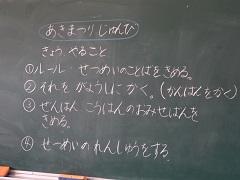 あきまつりじゅんび
きょう やること
①ルール・せつめいのことばをきめる。
②それをがようしにかく。(かんばんをかく)
③ぜんはん こうはんのおみせばんを
きめる。
④せつめいのれんしゅうをする